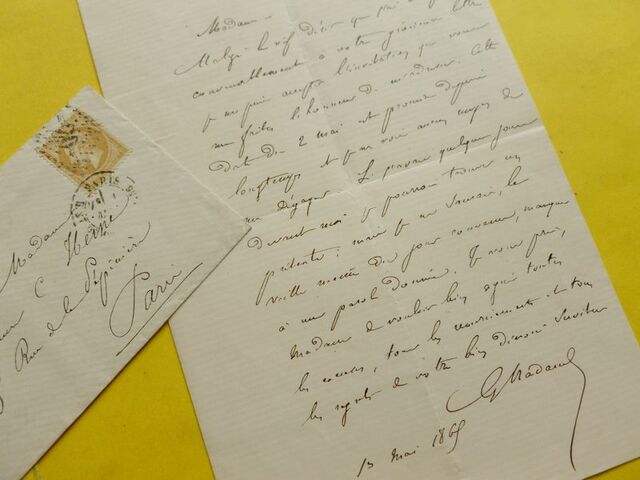 Madame
Malgré le vif désir que j'ai
convenablement à votre gracieuse lettre
je ne puis accepter l'invitation que vous
me faites l'honneur de m'adresser. Cette
date du 2 mai est promise depuis
longtemps et je ne vois aucun moyen de
me dégager. Si quelques jours
devant moi je pourrais trouver un
prétexte; mais je ne saurais, la
veille même du jour convenu, manquer
à une parole donnée. Je vous prie,
Madame de vouloir bien agréer toutes
les excuses, tous les remerciements et tous
les regrets de votre bien dévoué serviteur
1 Mai 1865
PARIS
Madame
C Heine
Rue de la Pépinière
Paris